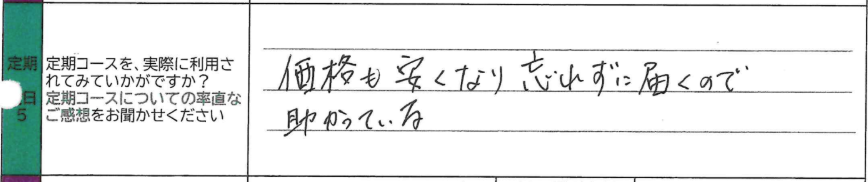 定期
日
5
定期コースを、実際に利用さ
れてみていかがですか？
定期コースについての率直な
ご感想をお聞かせください
価格も安くなり忘れずに届くので
助かっている